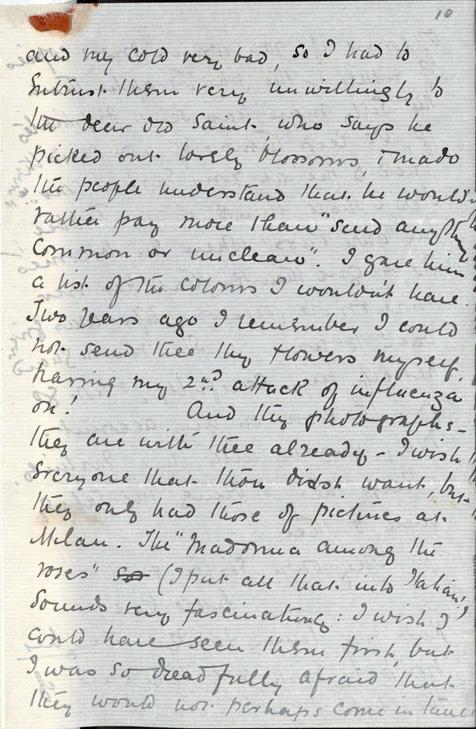 10
and my cold very bad, so I had to
Entrust them very unwillingly to
the dear old Saint, who says he
picked out lovely blossoms, & made
the people understand that he would
rather pay more than "send anything
Common or unclean". I gave him
a list of the colours I wouldn't have.
Two Years ago I remember I could
not send thee thy flowers myself,
having my 2nd attack of influenza
on! And thy photographs -
they are with thee already - I wish
Everyone that thou didst want, but
they only had those of pictures at
Milan. The "Madonna among the
roses" so (I put all that into Italian!)
Sounds very fascinating: I wish I
could have seen them first, but
I was so dreadfully afraid that
they would not perhaps come in time